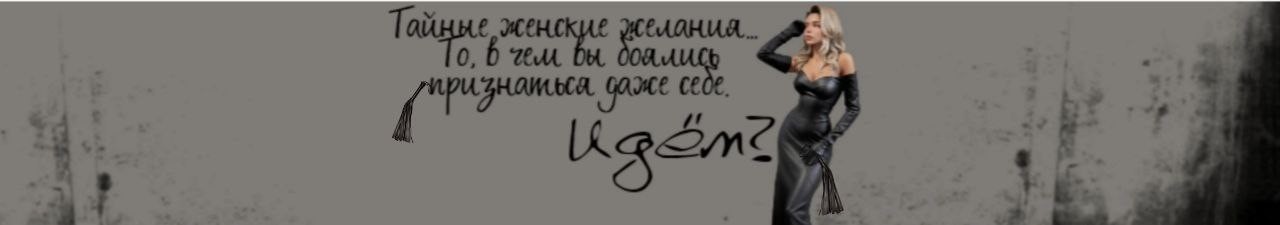 Тайные женские желания...
То, в чем вы боялись
признаться даже себе.
Идём?